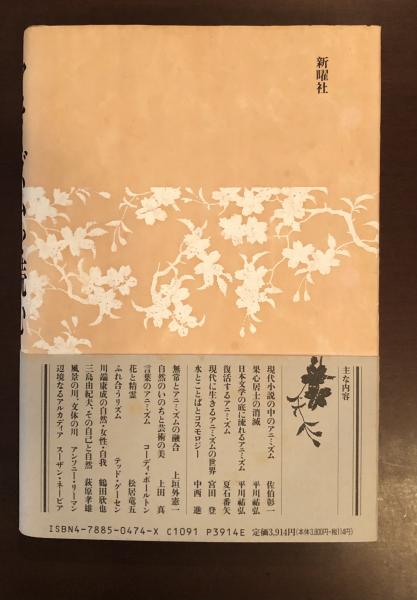 新曜社
主な内容
現代小説の中のアニミズム　佐伯彰一
果心居士の消滅　平川祐弘
日本文学の底に流れるアニミズム　平川祐弘
復活するアニミズム　夏石番矢
現代に生きるアニミズムの世界　宮田 登
水とことばとコスモロジー　中西 進
無常とアニミズムの融合　上垣外憲一
自然のいのちと芸術の美　上田 真
言葉のアニミズム　コーディ・ポールトン
花と精霊　松居竜五
ふれ合うリズム　テッド・グーセン
川端康成の自然・女性・自我　鶴田欣也
三島由紀夫、その自己と自然　萩原孝雄
風景の川、文体の川　アンソニー・リーマン
辺境なるアルカディア　スーザン・ネーピア
ISBN4-7885-0474-X C1091 P3914E 定価3,914円(本体3,800円+税114円)